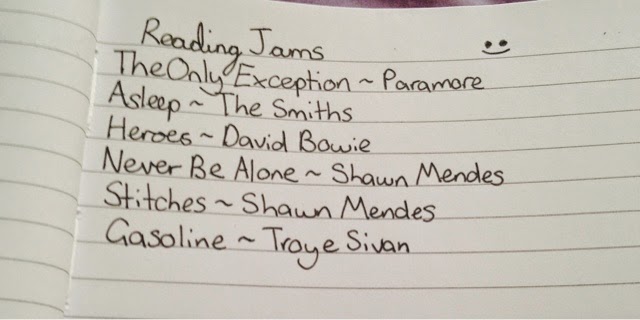 Reading Jams
The Only Exception ~ Paramore
Asleep ~ The Smiths
Heroes ~ David Bowie
Never Be Alone ~ Shawn Mendes
Stitches ~ Shawn Mendes
Gasoline ~ Troye Sivan